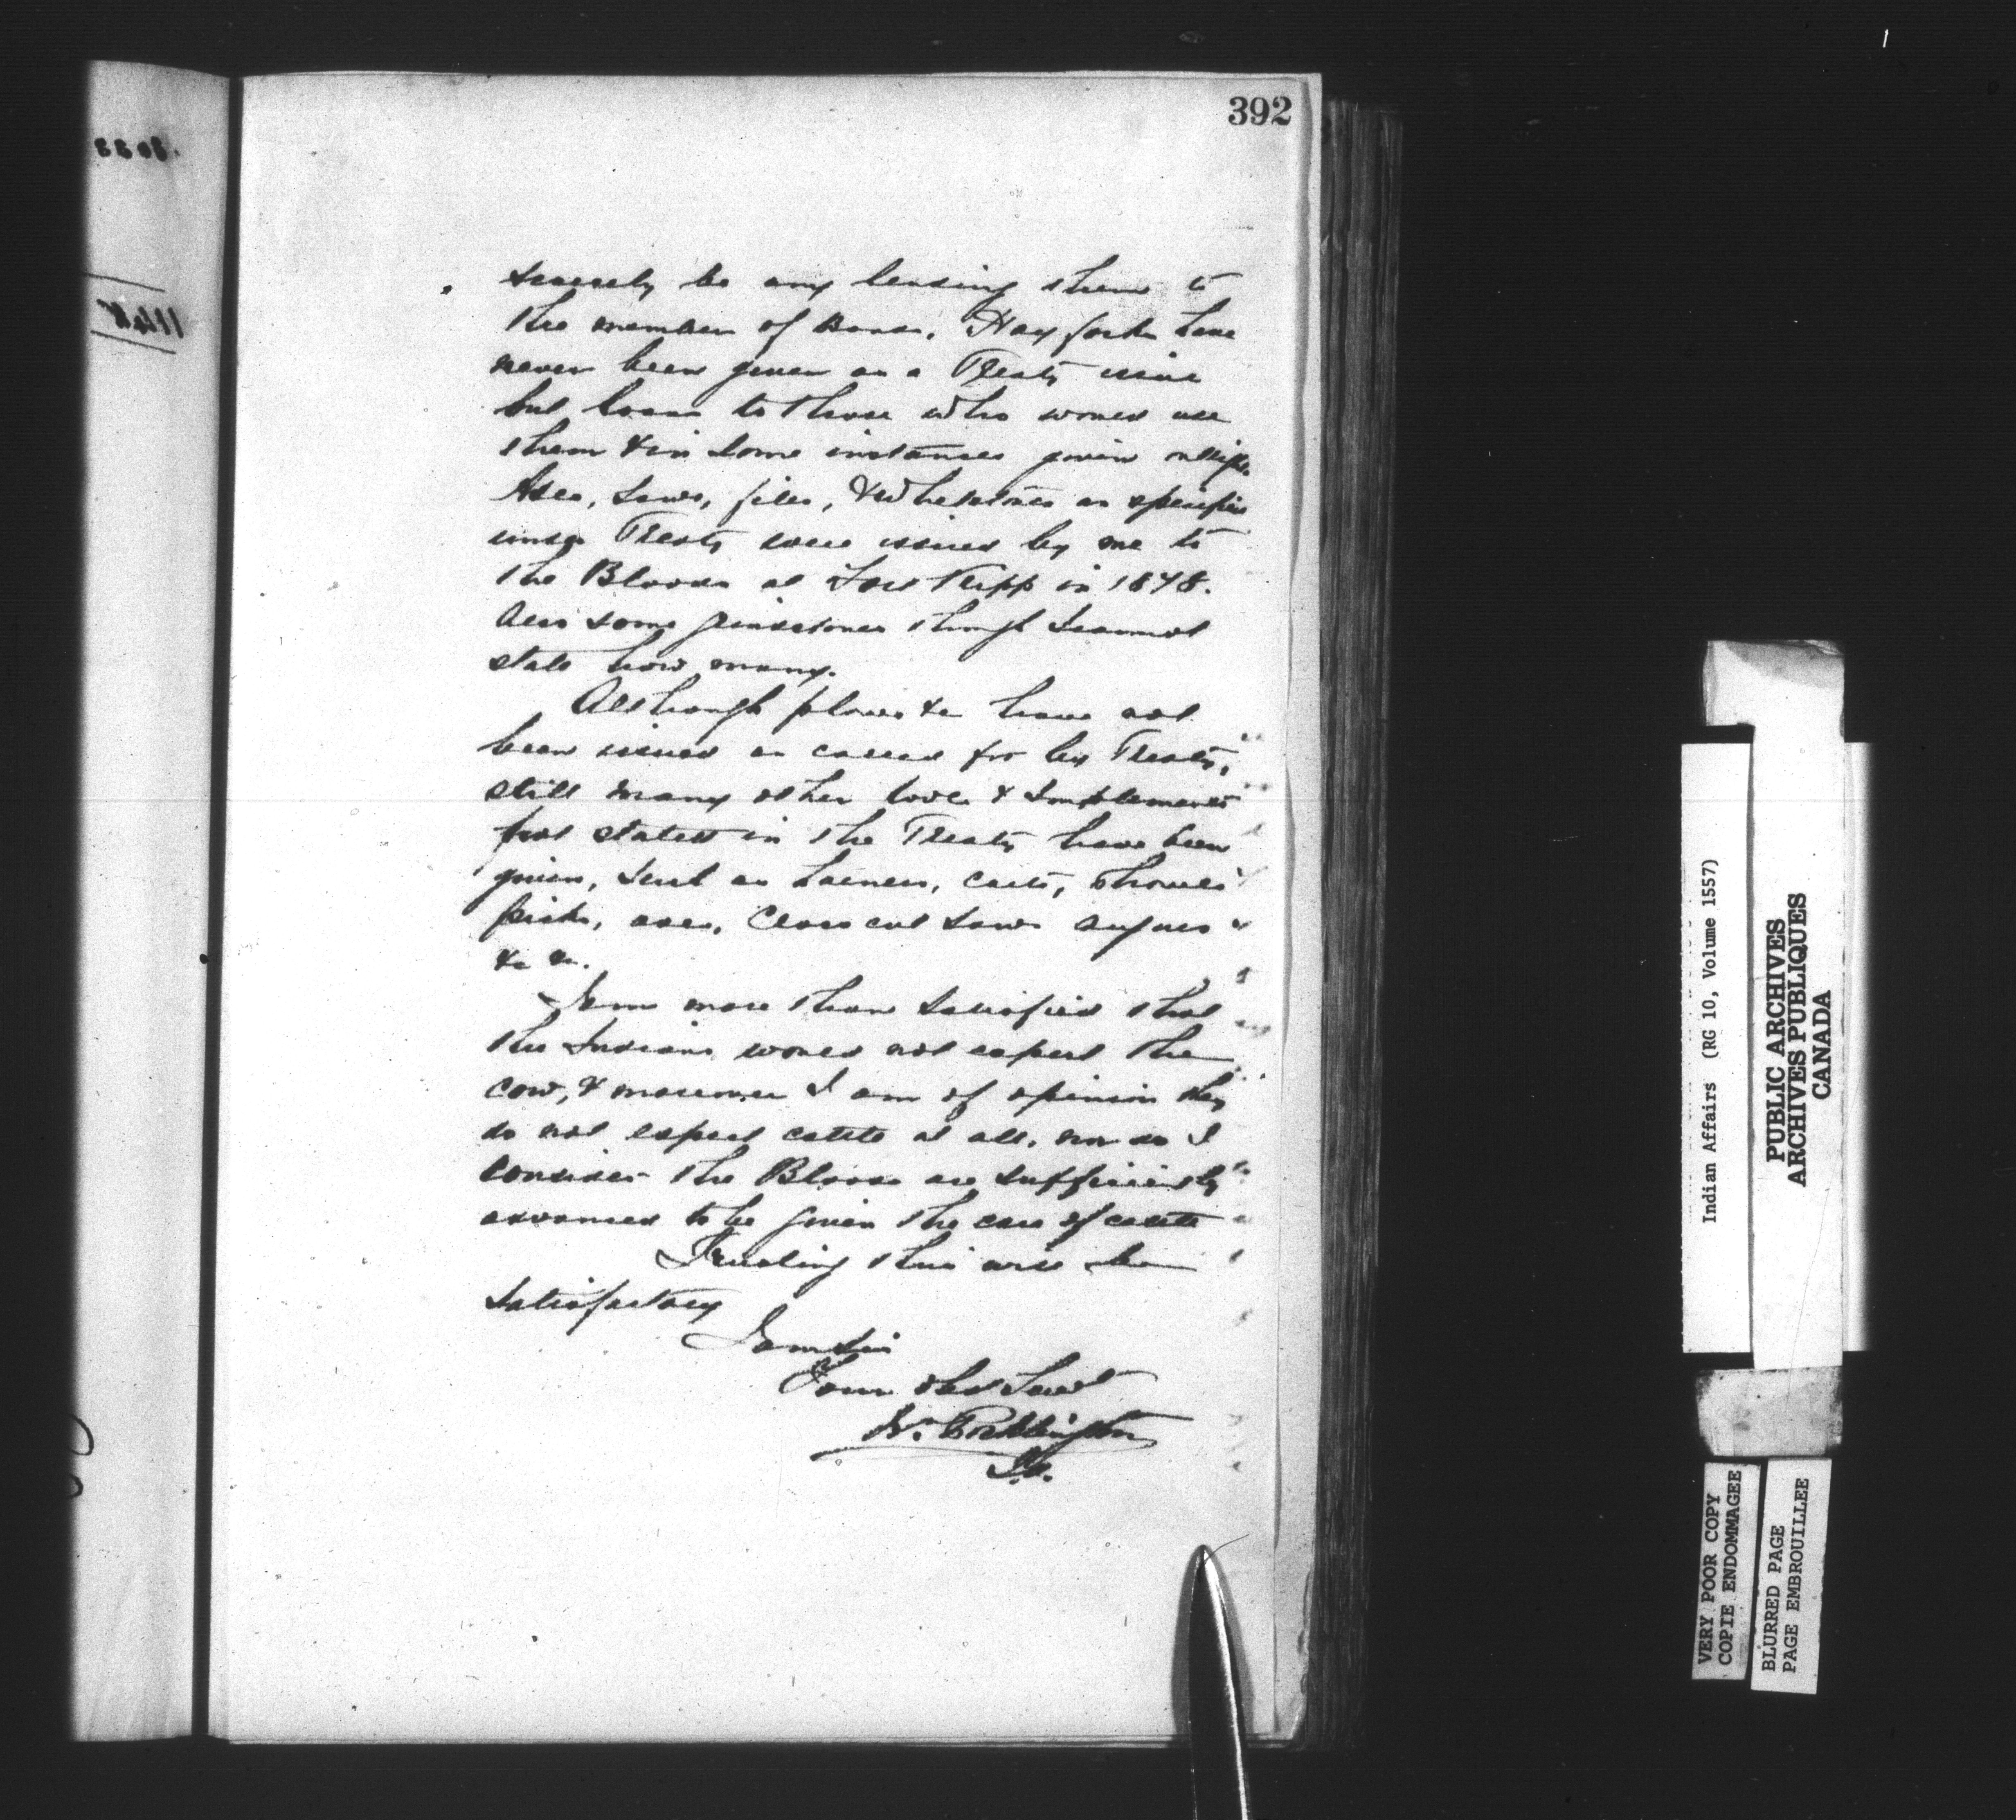 392
scarcely be any lending them to
the member of Bands. Hay forks have
never been given as a Treaty issue
but loans to those who would use
them & in some instances given
Axes, Saws, files, & Whetstones as specified
under Treaty were issued by me to
the Bloods at Fort Kipp in 1878.
Also some grindstones though I cannot
state how many.
Although plows &c have not
been issued as called for by Treaty,
still many other tools & Implements
not stated in the Treaty have been
given, such as harness, carts, shovels
picks, axes, Cross cut Saws augurs &
&c &c.
I am more than satisfied that
the Indians would not expect the
cow, & moreover I am of opinion they
do not expect cattle at all, nor do I
consider the Bloods are sufficiently
advanced to be given the care of cattle
Trusting this will be
satisfactory
I am Sir
Your obed Servt
W. Pocklington
Indian Affairs (RG 10, Volume 1557)
PUBLIC ARCHIVES
ARCHIVES PUBLIQUES
CANADA
VERY POOR COPY
COPIE ENDOMMAGEE
BLURRED PAGE
PAGE EMBROUILLEE